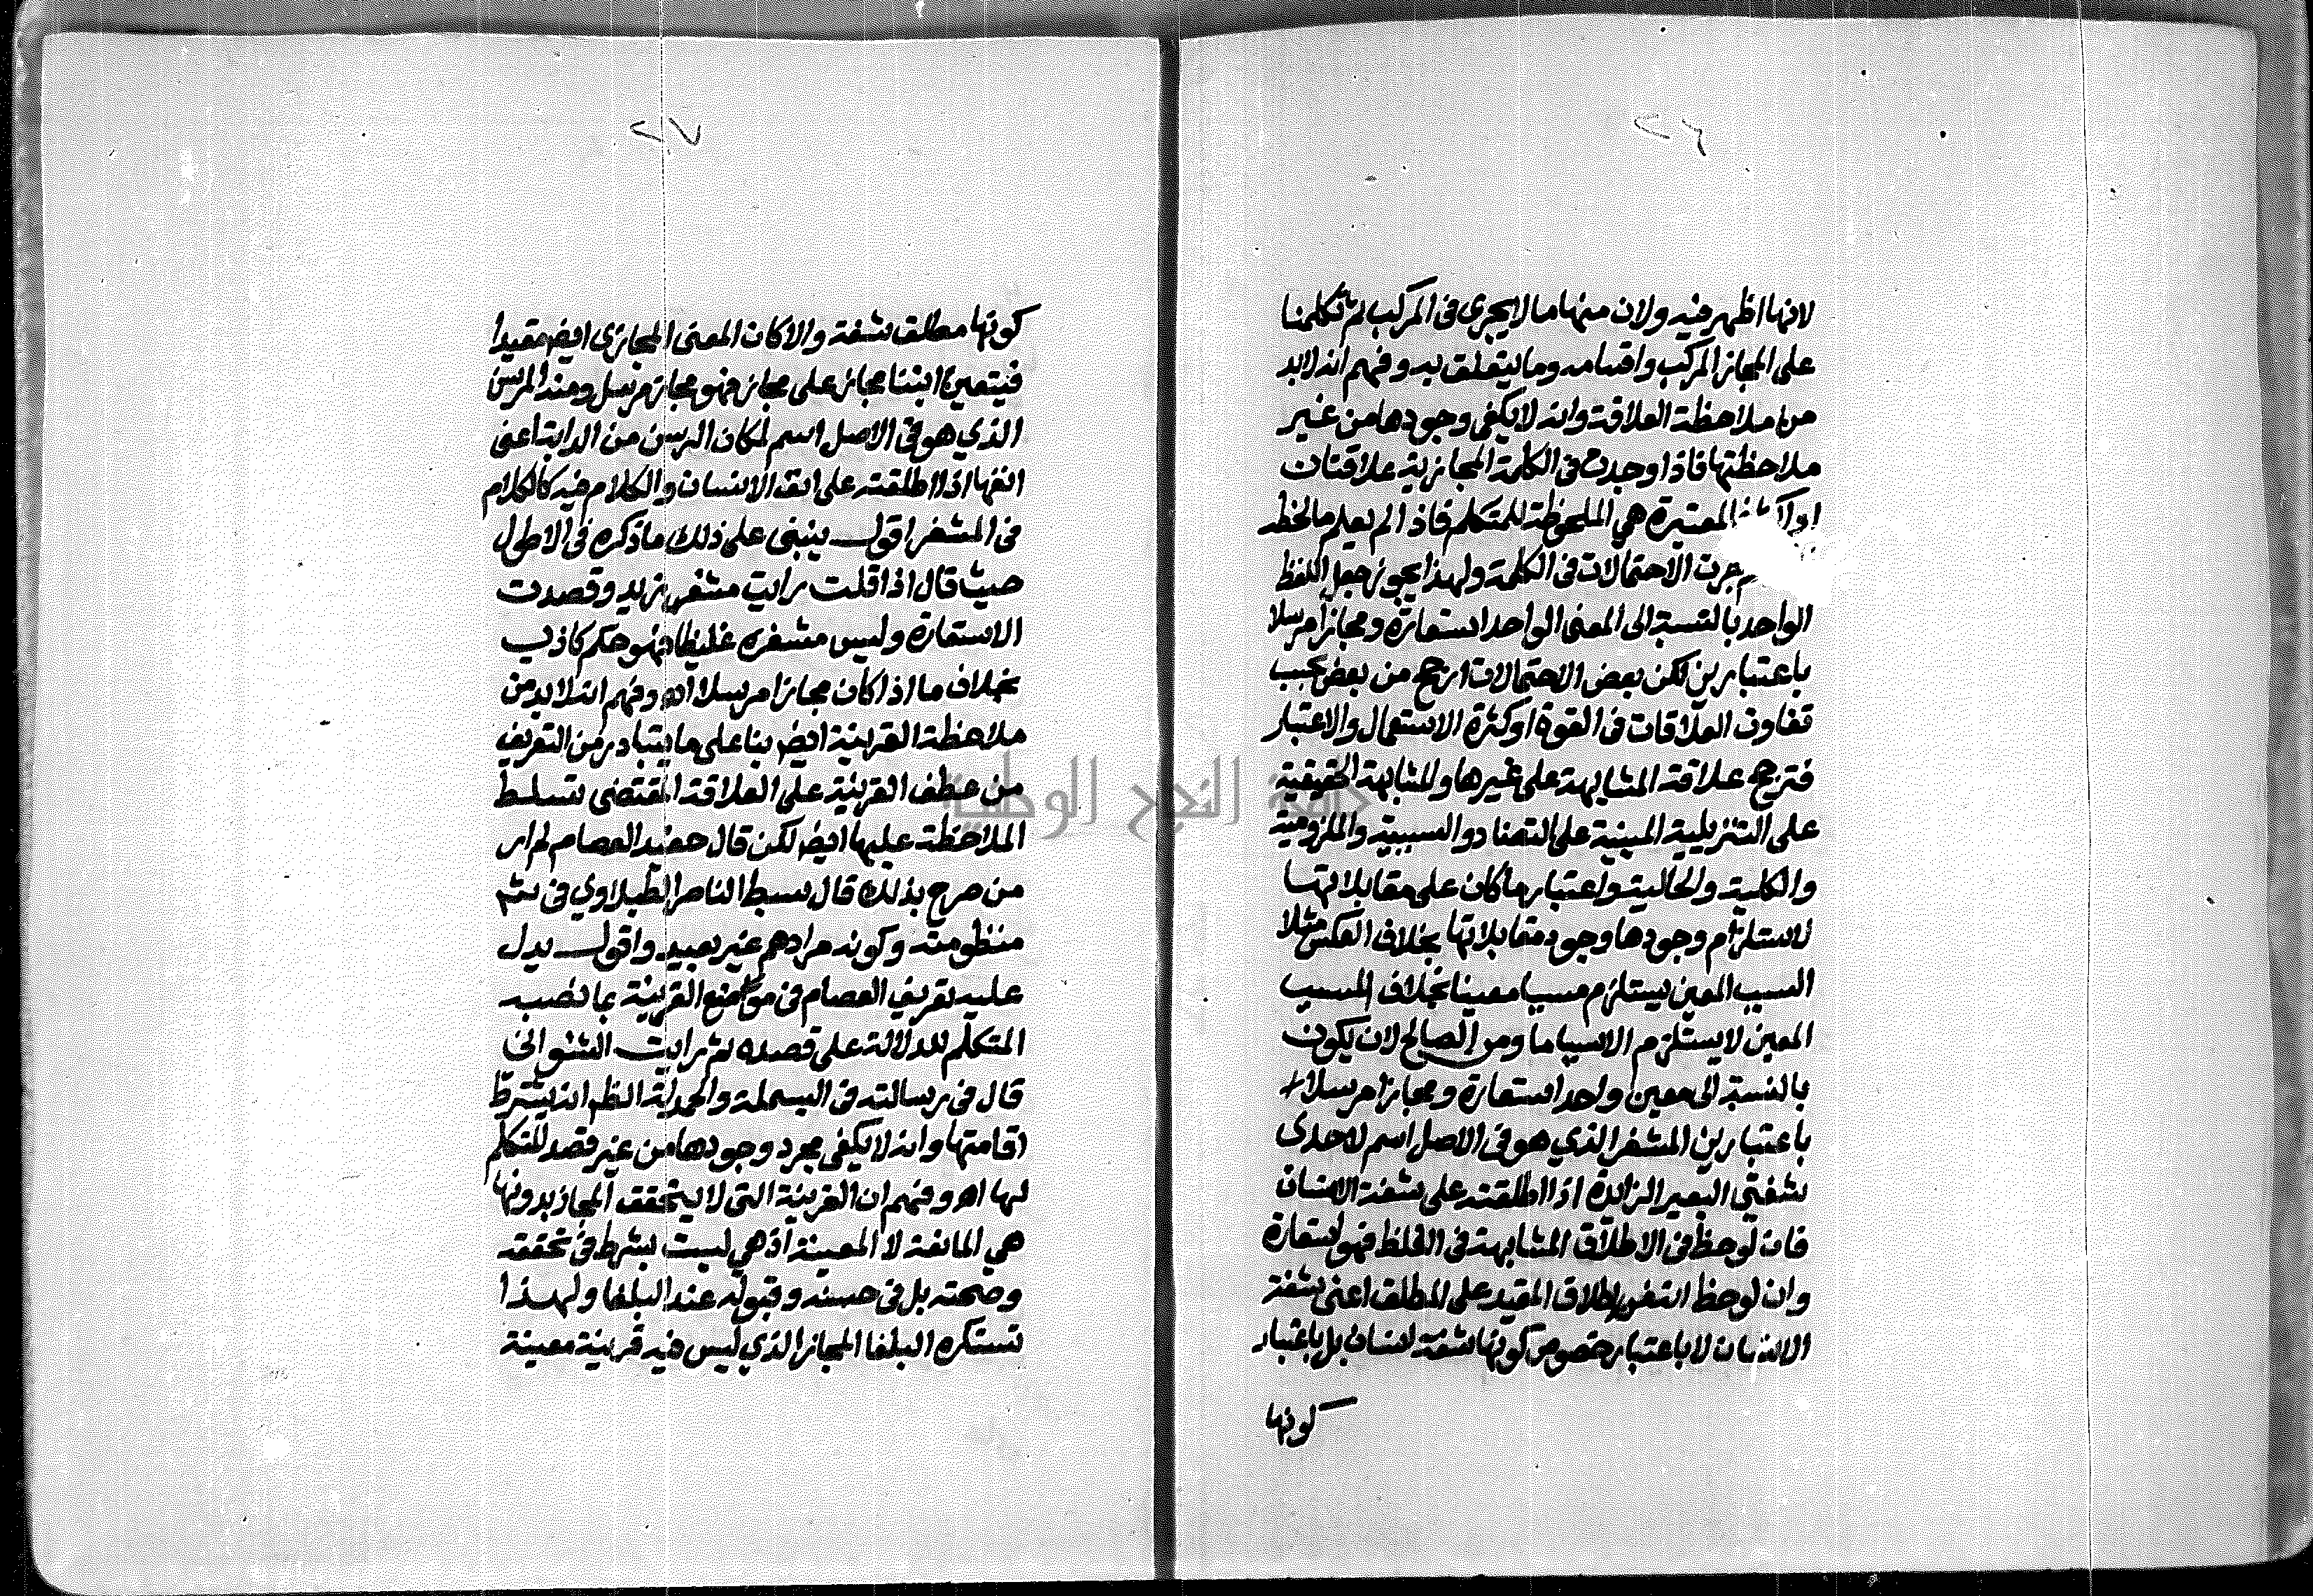 ٢٦
لانها اظهر فيه ولان منها ما لا يجري في المركب ثم تكلمنا
على المجاز المركب واقسامه وما يتعلق به وفهم انه لابد
من ملاحظة العلاقة وانه لا يكفي وجودها من غير
ملاحظتها فاذا وجدت في الكلمة المجازية علاقتان
او المعتبرة هي الملحوظة للمتكلم فاذا لم يعلم مالحظ
جرت الاحتمالات في الكلمة ولهذا يجوز جعل اللفظ
الواحد بالنسبة الى المعنى الواحد استعارة ومجازا مرسلا
باعتبارين لكن بعض الاحتمالات ارجح من بعض بحسب
تفاوت العلاقات في القوة او كثرة الاستعمال والاعتبار
فترجح علاقة المشابهة على غيرها والمشابهة الحقيقية
على التنزيلية المبنية على التضاد والسببية والملزومية
والكلية والحالية واعتبار ما كان على مقابلاتها
لاستلزام وجودها وجود مقابلاتها بخلاف العكس مثلا
السبب المعين يستلزم مسببا معينا بخلاف المسبب
المعين لا يستلزم الا سببا ما ومن الصالح لان يكون
بالنسبة الى معين واحد استعارة ومجازا مرسلا
باعتبارين المشفر الذي هو في الاصل اسم لاحدى
شفتي البعير الزائدة اذا اطلقته على شفة الانسان
فان لوحظ في الاطلاق المشابهة في الغلظ فهو استعارة
وان لوحظ انه من اطلاق المقيد على المطلق اعني شفة
الانسان لا باعتبار خصوص كونها شفة انسان بل باعتبار
كونها
٢٧
كونها مطلق شفة والا كان المعنى المجازي ايض مقيدا
فيتعين ابتنا مجاز على مجاز فهو مجاز مرسل ومنه المرسن
الذي هو في الاصل اسم لمكان الرسن من الدابة اعني
انفها اذا اطلقته على انف الانسان والكلام فيه كالكلام
في المشفر اقول ينبني على ذلك ما ذكره في الاطول
حيث قال اذا قلت رايت مشفر زيد وقصدت
الاستعارة وليس مشفره غليظا فهو حكم كاذب
بخلاف ما اذا كان مجازا مرسلا اه وفهم انه لابد من
ملاحظة القرينة ايض بنا على ما يتبادر من التعريف
من عطف القرينة على العلاقة المقتضي تسلط
الملاحظة عليها ايض لكن قال حفيد العصام لم ار
من صرح بذلك قال سبط الناصر الطبلاوي في شم
منظومته وكونه مرادهم غير بعيد واقول يدل
عليه تعريف العصام في مواضع القرينة بما نصبه
المتكلم للدلالة على قصده ثم رايت الشنواني
قال في رسالته في البسملة والحمدلة الظم انه يشترط
اقامتها وانه لا يكفي مجرد وجودها من غير قصد المتكلم
لها اه وفهم ان القرينة التي لا يتحقق المجاز بدونها
هي المانعة لا المعينة اذ هي ليست بشرط في تحققه
وصحته بل في حسنه وقبوله عند البلغا ولهذا
تستكره البلغا المجاز الذي ليس فيه قرينة معينة
جامعة النجاح الوطنية